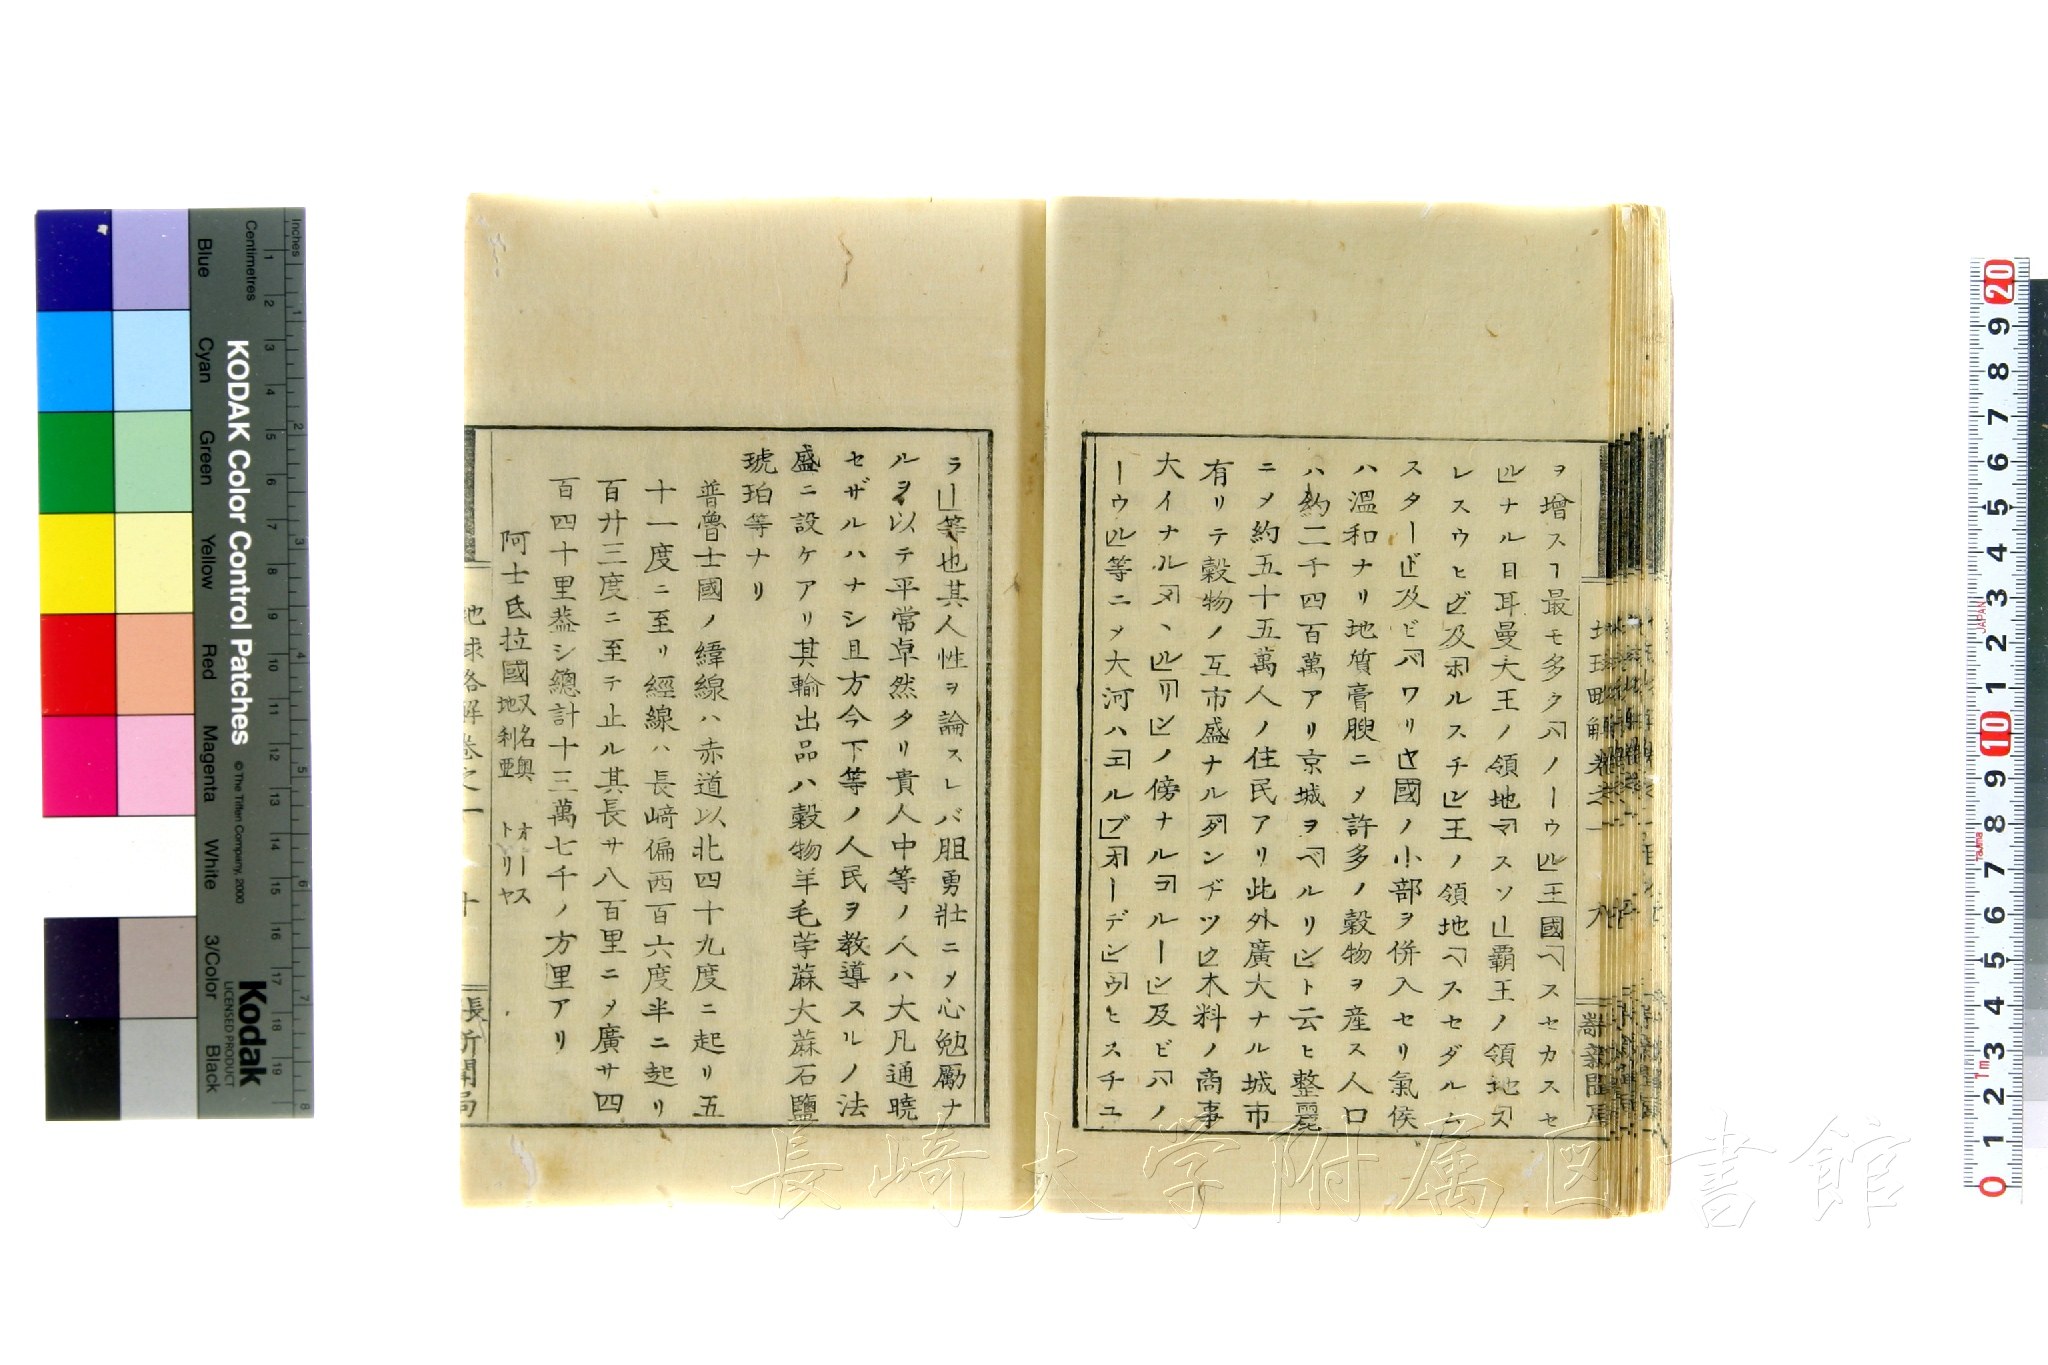 ヲ增スヿ最モ多ク「ハノーウル」王國「ヘスセカスセ
ル」ナル日耳曼大王ノ領地「マスソー」覇王ノ領地「ス
レスウヒグ」及「ホルスチン」王ノ領地「ヘスセダルム
スタード」及ビ「バワリヤ」國ノ小部ヲ併入セリ氣侯
ハ溫和ナリ地質膏腴ニ〆許多ノ穀物ヲ産ス人口
ハ約二千四百萬アリ京城ヲ「ベルリン」ト云ヒ整麗
ニ〆約五十五萬人ノ住民アリ此外廣大ナル城市
有リテ穀物ノ互市盛ナル「ダンヅツウ」木料ノ商事
大イナル「メヽル」「リン」ノ傍ナル「ヲルーン」及ビ「ハノ
ーウル」等ニ〆大河ハ「エルブ」「オーデン」「ウヒスチユ
地球畧解卷之一
九
崎新聞局
ラー」等也其人性ヲ論スレバ胆勇壯ニ〆心勉勵ナ
ルヲ以テ平常卓然タリ貴人中等ノ人ハ大凡通曉
セザルハナシ且方今下等ノ人民ヲ教導スルノ法
盛ニ設ケアリ其輸出品ハ穀物羊毛苧蔴大蔴石鹽
琥珀等ナリ
普魯士國ノ緯線ハ赤道以北四十九度ニ起リ五
十一度ニ至リ經線ハ長崎偏西百六度半ニ起リ
百廿三度ニ至テ止ル其長サ八百里ニ〆廣サ四
百四十里蓋シ總計十三萬七千ノ方里アリ
阿士氐拉國又名奥地利亜 オーストリヤ
地球畧解卷之一
十
長崎新聞局
KODAK Color Control Patches
© The Tiffen Company, 2000
Kodak
LICENSED PRODUCT
Inches
Centimetres
Blue
Cyan
Green
Yellow
Red
Magenta
White
3/Color
Black
JAPAN
Tajima
長崎大学附属図書館